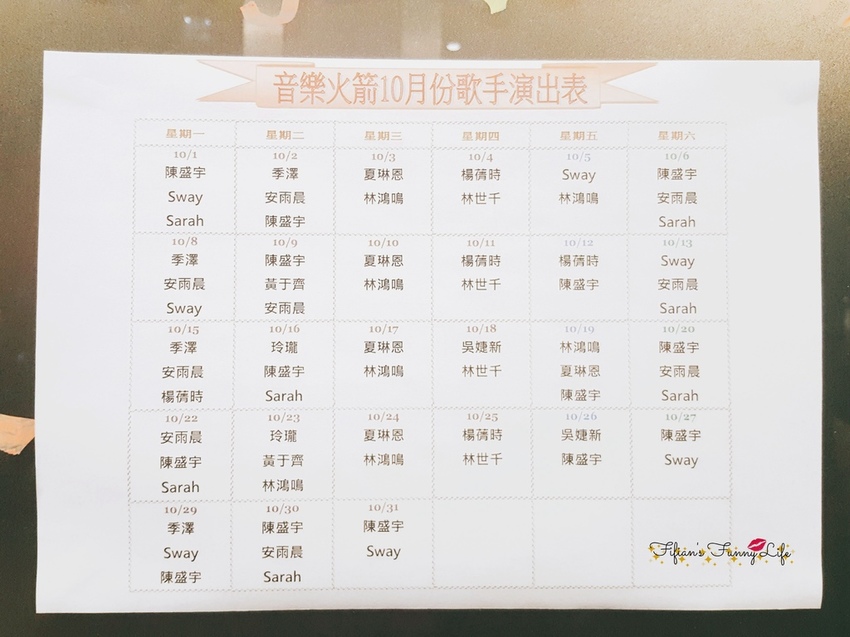 音樂火箭10月份歌手演出表
星期一 星期二 星期三 星期四 星期五 星期六
10/1 10/2 10/3 10/4 10/5 10/6
陳盛宇 季澤 夏琳恩 楊蒨時 Sway 陳盛宇
Sway 安雨晨 林鴻鳴 林世千 林鴻鳴 安雨晨
Sarah 陳盛宇 Sarah
10/8 10/9 10/10 10/11 10/12 10/13
季澤 陳盛宇 夏琳恩 楊蒨時 楊蒨時 Sway
安雨晨 黃于齊 林鴻鳴 林世千 陳盛宇 安雨晨
Sway 安雨晨 Sarah
10/15 10/16 10/17 10/18 10/19 10/20
季澤 玲瓏 夏琳恩 吳婕新 林鴻鳴 陳盛宇
安雨晨 陳盛宇 林鴻鳴 林世千 夏琳恩 安雨晨
楊蒨時 Sarah 陳盛宇 Sarah
10/22 10/23 10/24 10/25 10/26 10/27
安雨晨 玲瓏 夏琳恩 楊蒨時 吳婕新 陳盛宇
陳盛宇 黃于齊 林鴻鳴 林世千 陳盛宇 Sway
Sarah 林鴻鳴
10/29 10/30 10/31
季澤 陳盛宇 陳盛宇
Sway 安雨晨 Sway
陳盛宇 Sarah
Fifian's Funny Life